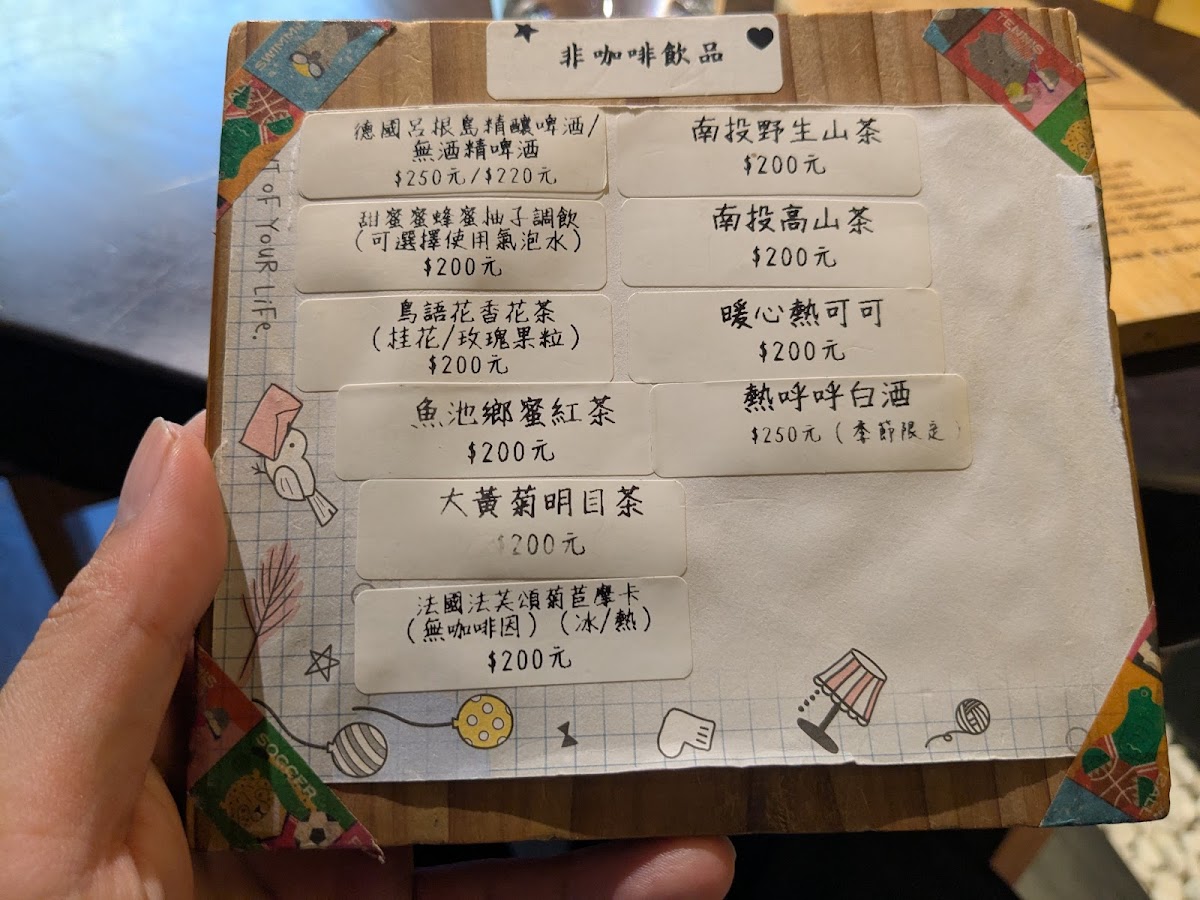 非咖啡飲品
德國呂根島精釀啤酒/
無酒精啤酒
$250元/$220元
甜蜜蜜蜂蜜柚子調飲
(可選擇使用氣泡水)
$200元
鳥語花香花茶
(桂花/玫瑰果粒)
$200元
魚池鄉蜜紅茶
$200元
大黃菊明目茶
$200元
法國法芙頌菊苣摩卡
(無咖啡因) (冰/熱)
$200元
南投野生山茶
$200元
南投高山茶
$200元
暖心熱可可
$200元
熱呼呼白酒
$250元 (季節限定)
OF YOUR LiFe.
TENNIS
SOCCER